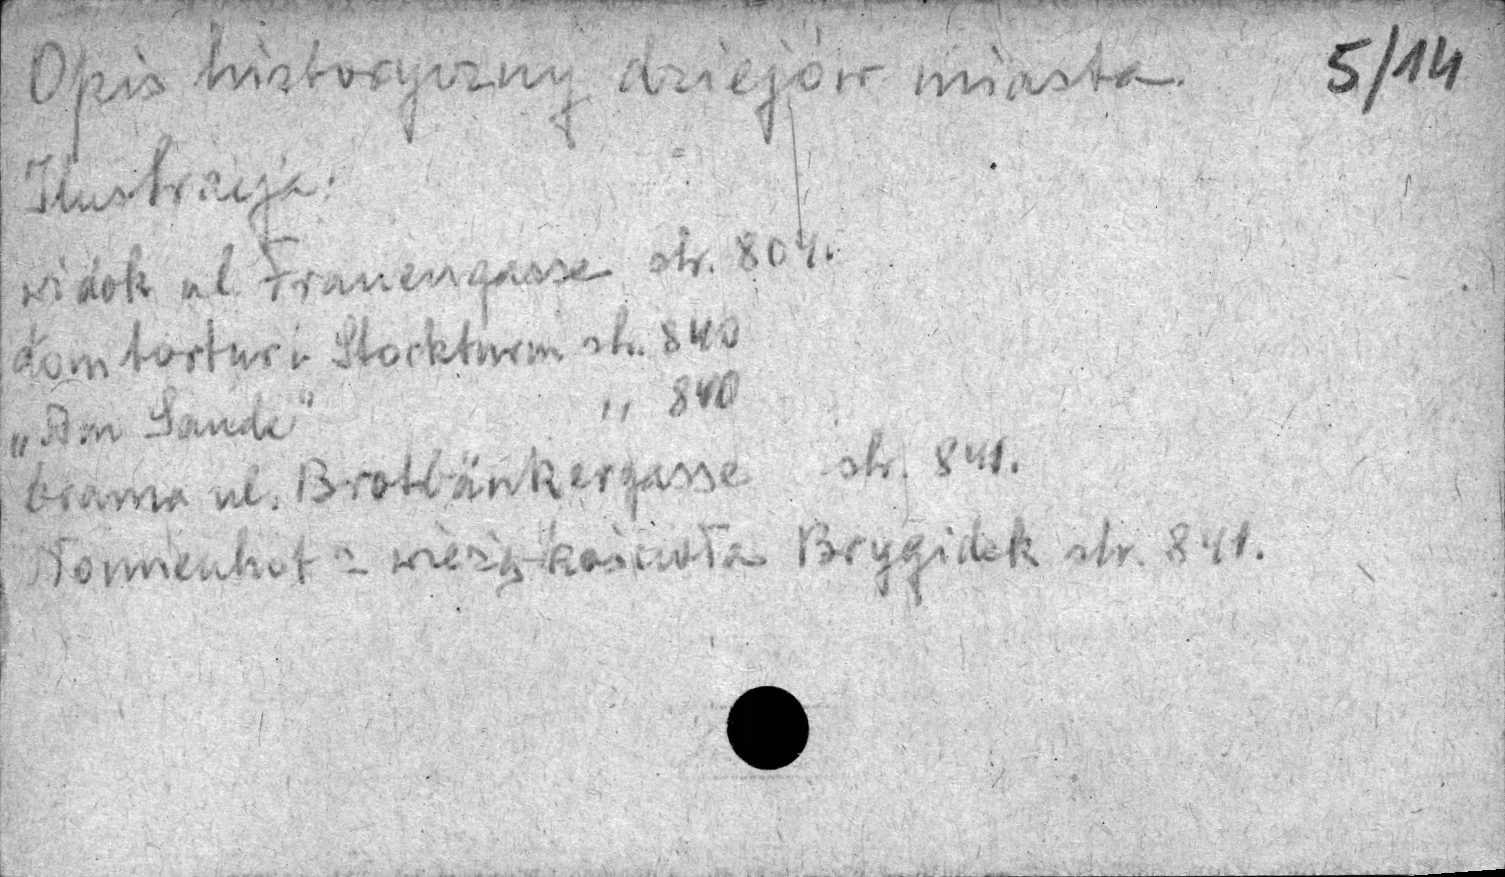 Opis historyczny dziejów miasta. 5/14
Ilustracja:
widok ul. Frauengasse str. 804.
dom tortur i Stockturm str. 840
„Am Sande" „ 840
brama ul. Brotbänkergasse str. 841.
Nonnenhof z wieżą kościoła Brygidek str. 841.